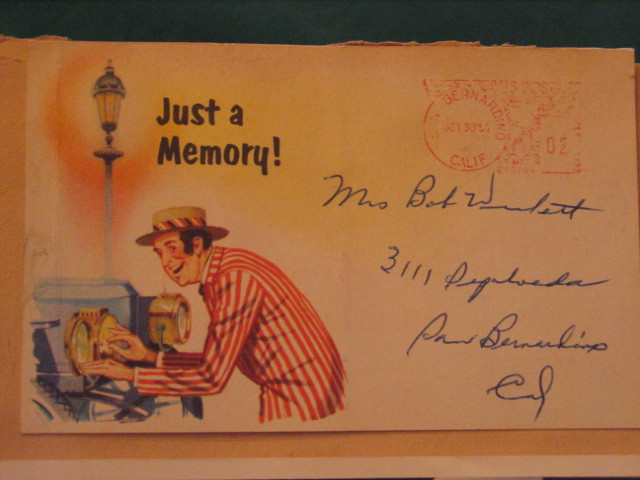 Just a
Memory!
SAN BERNARDINO
CALIF
02
Mrs Bob
3111 Sepulveda
San Bernardino
Cal